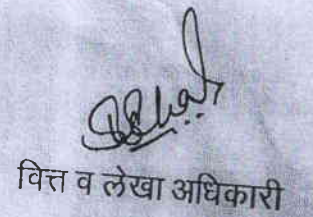 वित्त व लेखा अधिकारी